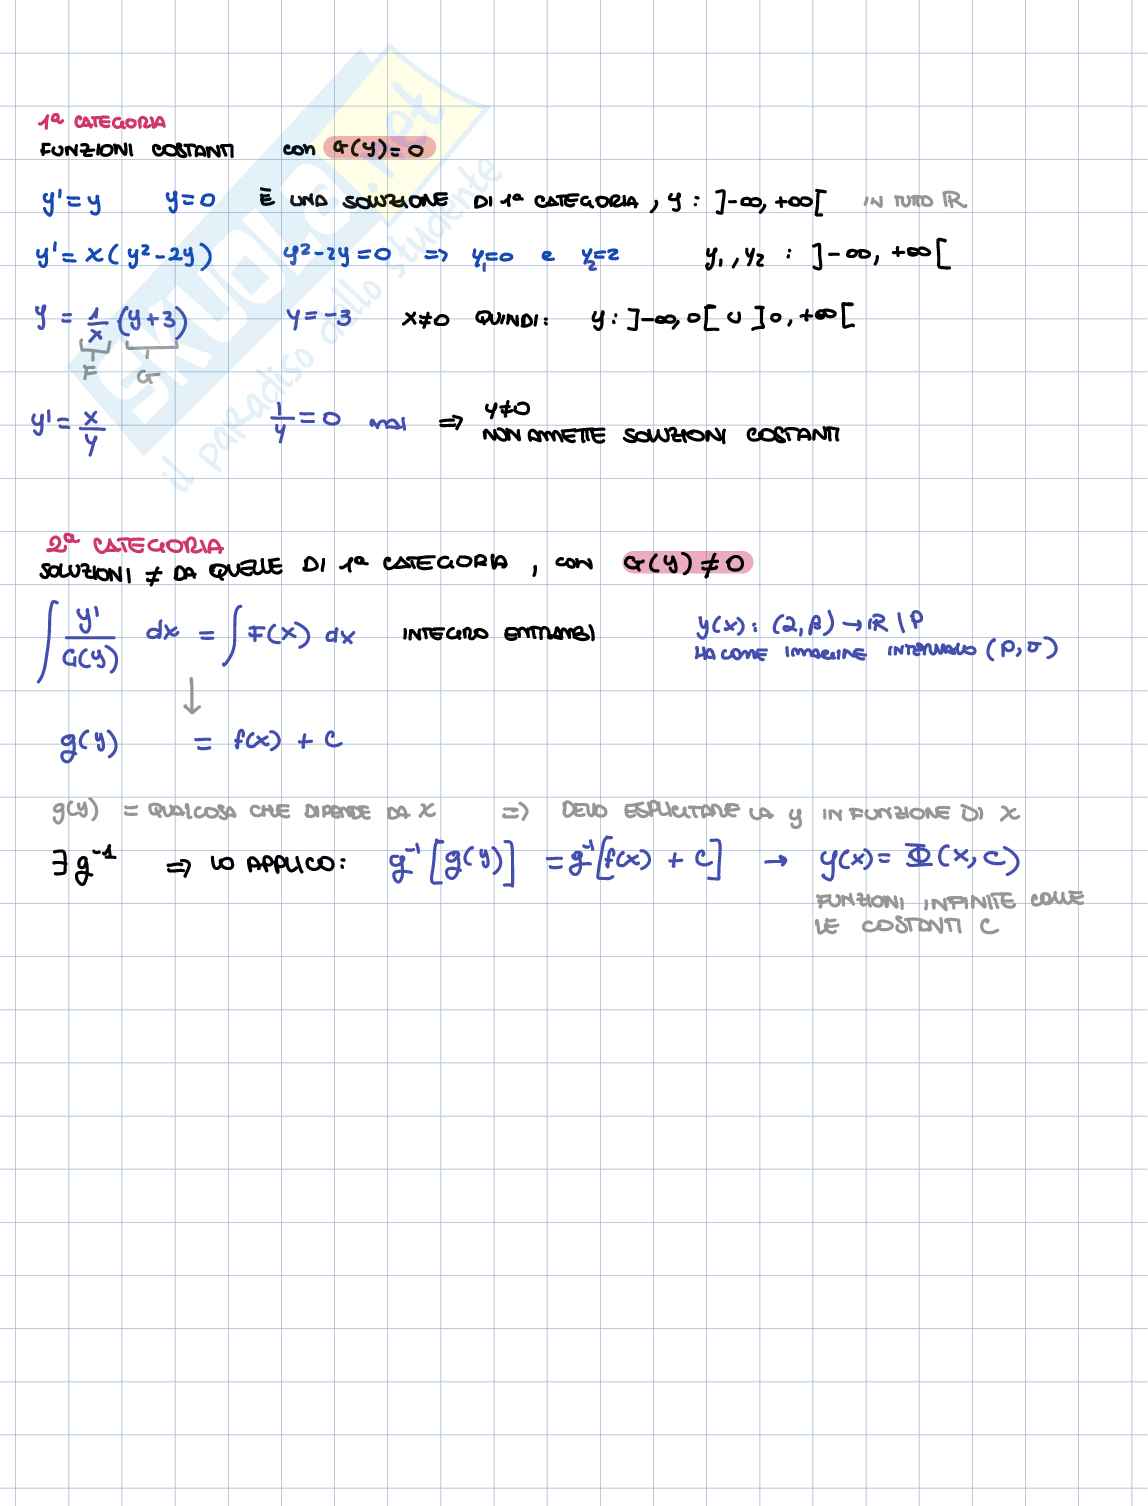 1ª CATEGORIA
FUNZIONI COSTANTI con G(y)=0
y'=y y=0 È UNA SOLUZIONE DI 1ª CATEGORIA, y : ]-∞, +∞[ IN TUTTO ℝ
y'= x(y²-2y) y²-2y=0 => y₁=0 e y₂=2 y₁, y₂ : ]-∞, +∞[
y = 1/x (y+3) y=-3 x≠0 QUINDI: y: ]-∞,0[ ∪ ]0,+∞[
F G
y'= x/y 1/y =0 mai => y≠0
NON AMMETTE SOLUZIONI COSTANTI
2ª CATEGORIA
SOLUZIONI ≠ DA QUELLE DI 1ª CATEGORIA, con G(y)≠0
∫ y'/G(y) dx = ∫ F(x) dx INTEGRO ENTRAMBI y(x): (2,β)→ℝ \ P
HA COME IMMAGINE INTERVALLO (ρ,σ)
↓
g(y) = f(x) + c
g(y) = QUALCOSA CHE DIPENDE DA X => DEVO ESPLICITARE LA y IN FUNZIONE DI X
∃ g⁻¹ => LO APPLICO: g⁻¹[g(y)] = g⁻¹[f(x) + c] → y(x)= Φ(x,c)
FUNZIONI INFINITE COME
LE COSTANTI C
SKUOLA.net
il paradiso dello studente